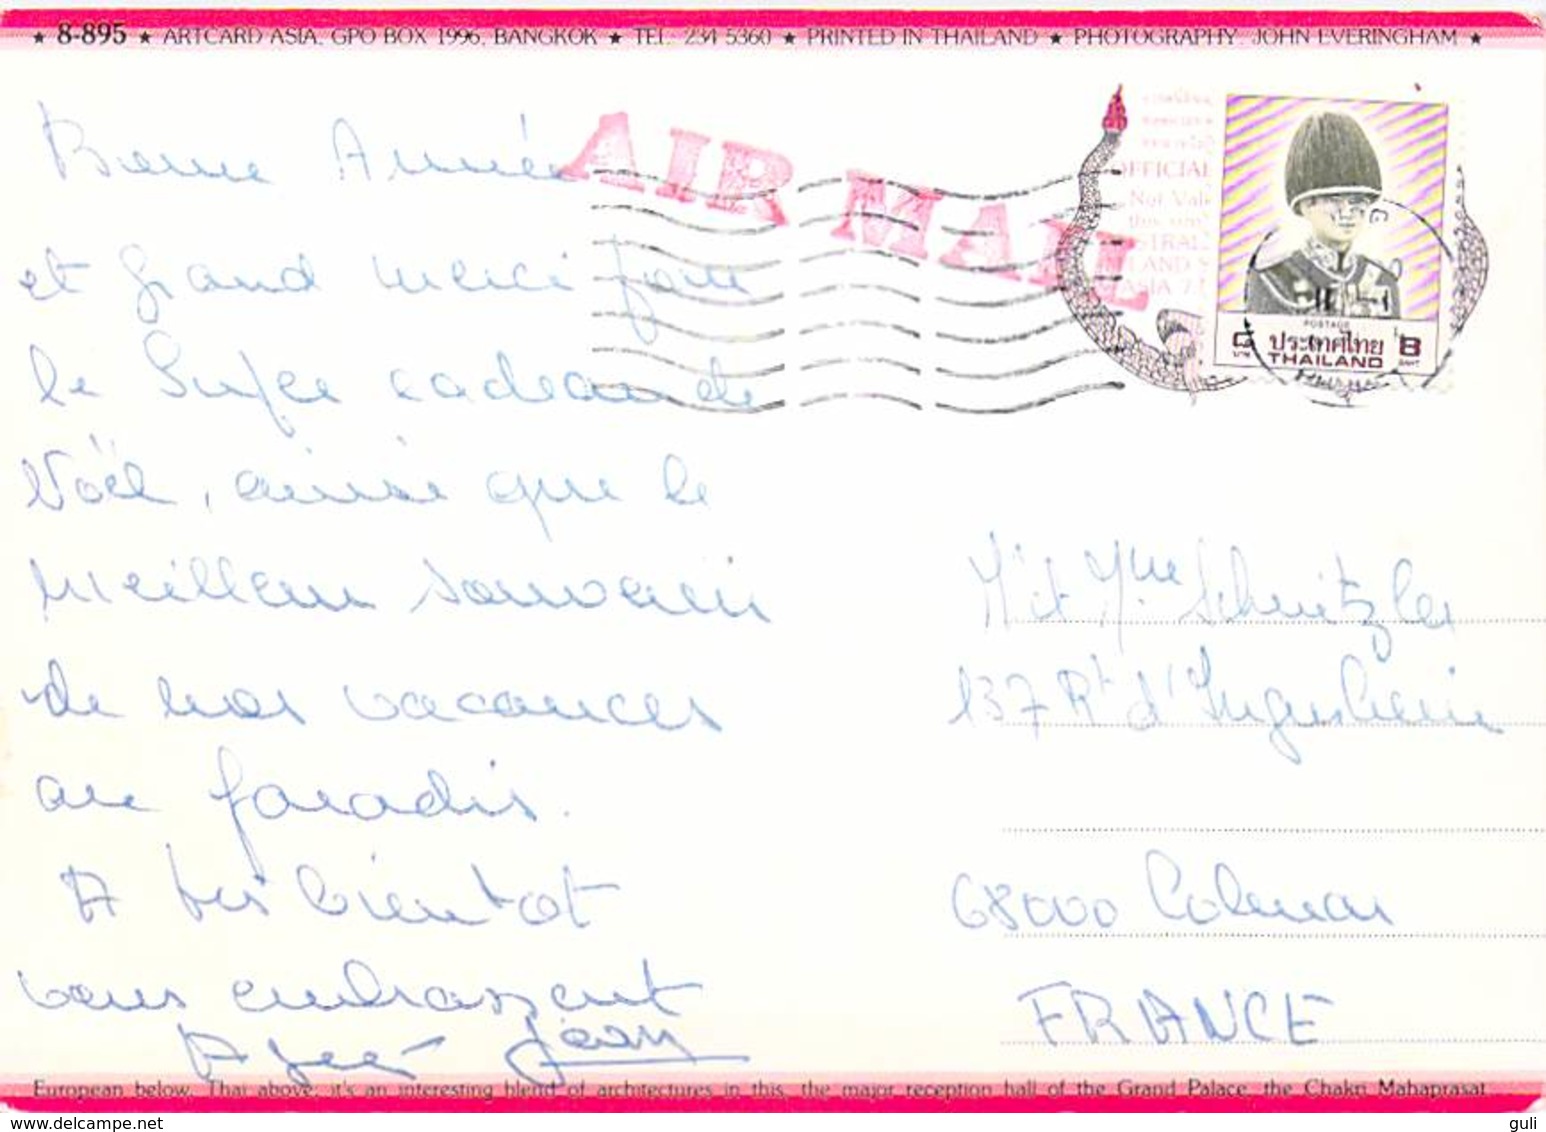 ★ 8-895 ★ ARTCARD ASIA, GPO BOX 1996, BANGKOK ★ TEL. 234 5360 ★ PRINTED IN THAILAND ★ PHOTOGRAPHY: JOHN EVERINGHAM ★
AIR MAIL
OFFICIAL
POSTAGE
8 ประเทศไทย 8
บาท THAILAND BAHT
Bonne Année
et grand merci pour
le super cadeau de
Noël, ainsi que le
meilleur souvenir
de nos vacances
au paradis.
A très bientôt
vous embrassent
Jean
M. et Mme Schnitzler
137 Rt d'Ingersheim
68000 Colmar
FRANCE
European below, Thai above, it's an interesting blend of architectures in this, the major reception hall of the Grand Palace, the Chakri Mahaprasat
guli